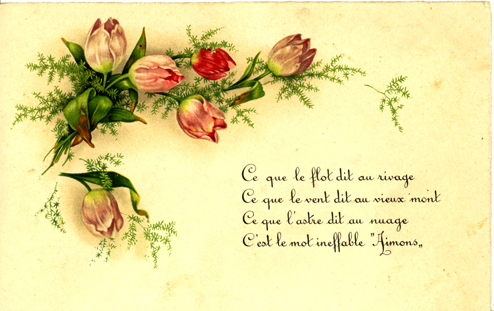 Ce que le flot dit au rivage
Ce que le vent dit au vieux mont
Ce que l'astre dit au nuage
C'est le mot ineffable "Aimons„